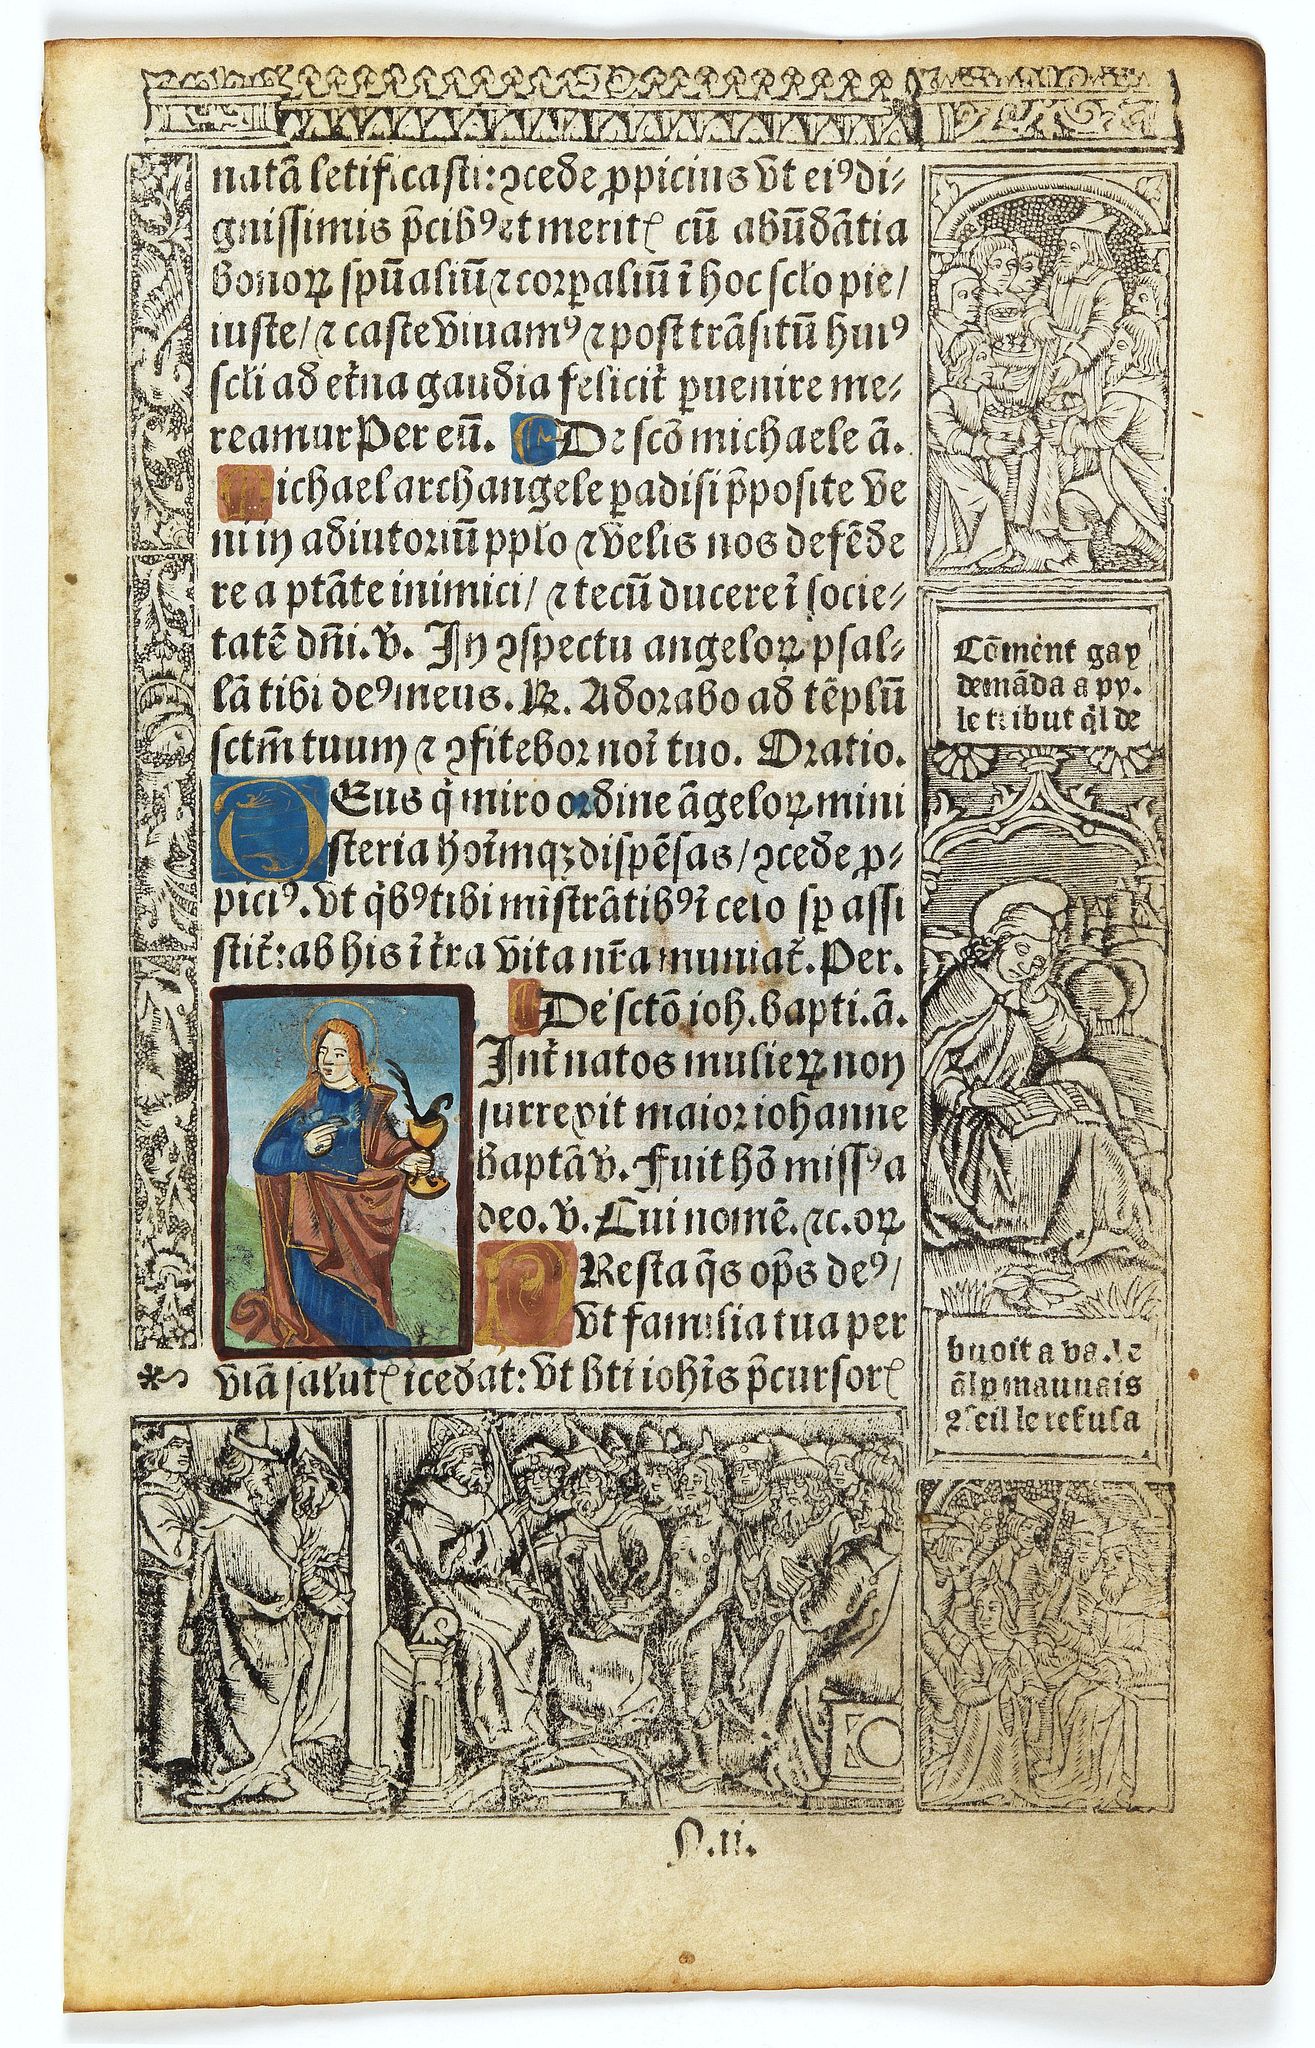 natã letificasti: ꝯcede ꝓpicius vt eiꝰ di⸗
gnissimis p̃cibꝰ et meritꝭ cũ abũdãtia
bonoꝝ spũaliũ ⁊ corꝑaliũ ĩ hoc sclo pie/
iuste/ ⁊ caste viuamꝰ ⁊ post trãsitũ huiꝰ
scli ad et̃na gaudia felicit̃ ꝑuenire me⸗
reamur Per eũ. De scõ michaele ã.
Michael archangele ꝑadisi p̃posite ve
ni in adiutoriũ pplo ⁊ velis nos defẽde
re a ptãte inimici/ ⁊ tecũ ducere ĩ socie⸗
tatẽ dñi. ꝟ. In ꝯspectu angeloꝝ psal⸗
lã tibi deꝰ meus. ℞. Adorabo ad tẽplũ
sctm̃ tuum ⁊ ꝯfitebor noĩ tuo. Oratio.
DEus q̃ miro ordine ãgeloꝝ mini
steria hoĩmqꝫ dispẽsas/ ꝯcede ꝓ⸗
piciꝰ. vt q̃bꝰ tibi mĩstrãtibꝰ ĩ celo sꝑ assi
stit̃: ab his ĩ t̃ra vita nr̃a muniat̃. Per.
De sctõ ioh. bapti. ã.
Int̃ natos mulieꝝ non
surrexit maior iohanne
baptã ꝟ. Fuit hõ missꝰ a
deo. ꝟ. Cui nomẽ. ⁊c. oꝝ
PResta q̃s op̃s deꝰ/
vt familia tua per
viã salutꝭ icedat: vt bti ioh̃is p̃cursorꝭ
Cõment gay
demãda a py.
le tribut q̃l de
buoit a
ãlp mauuais
ꝯseil le refusa
N.ii.